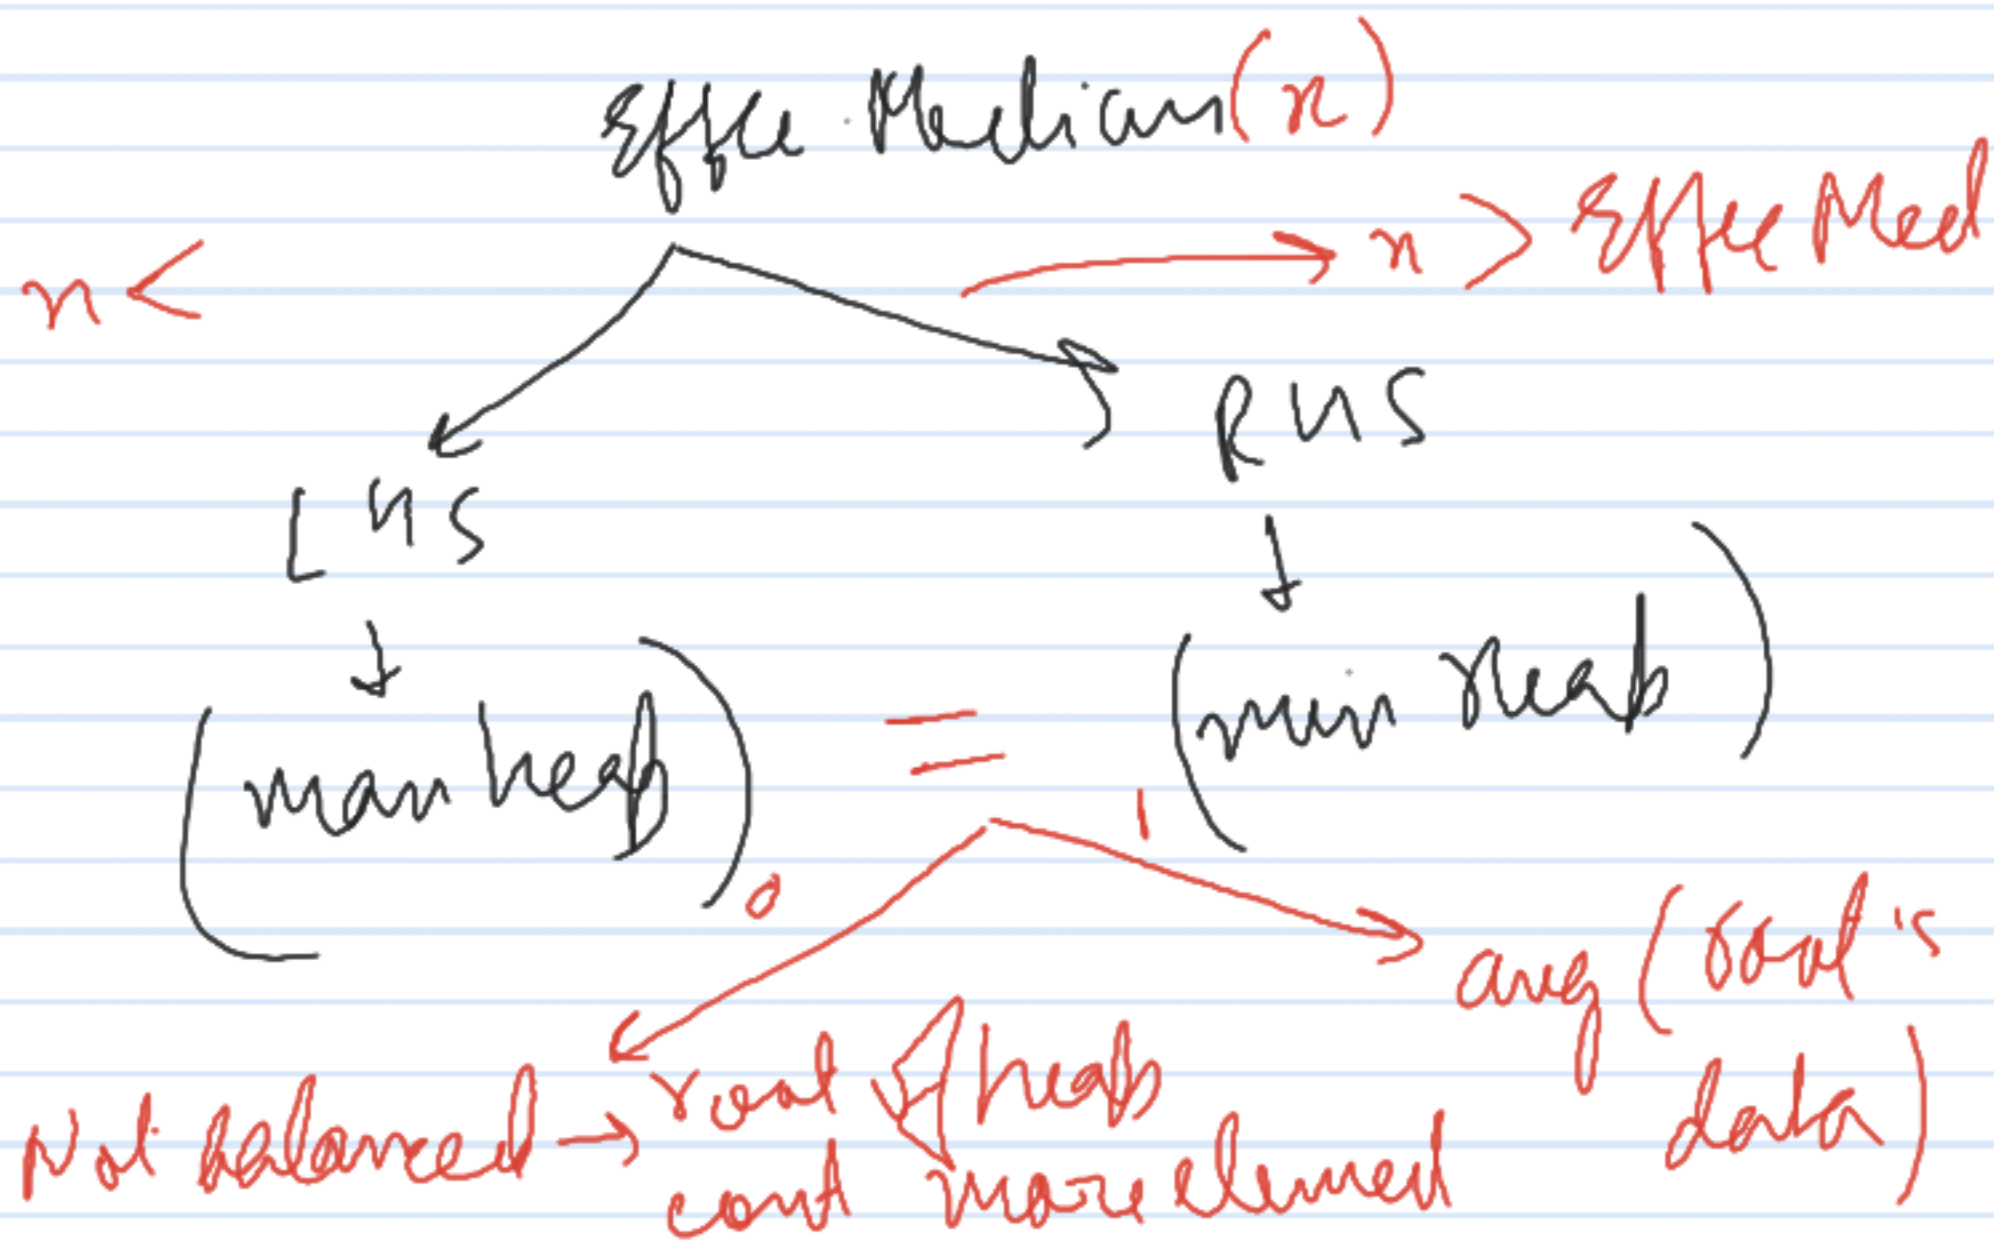 Effee Median (x)
x < x > Effee Med
LHS RHS
(max heap) = (min heap)
0 1
avg (root's data)
Not balanced → root of heap
cont more element